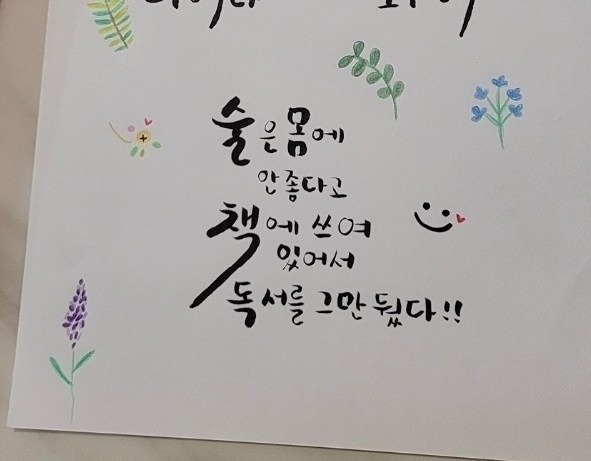 술은 몸에
안좋다고
책에 쓰여
있어서
독서를 그만 뒀다!!